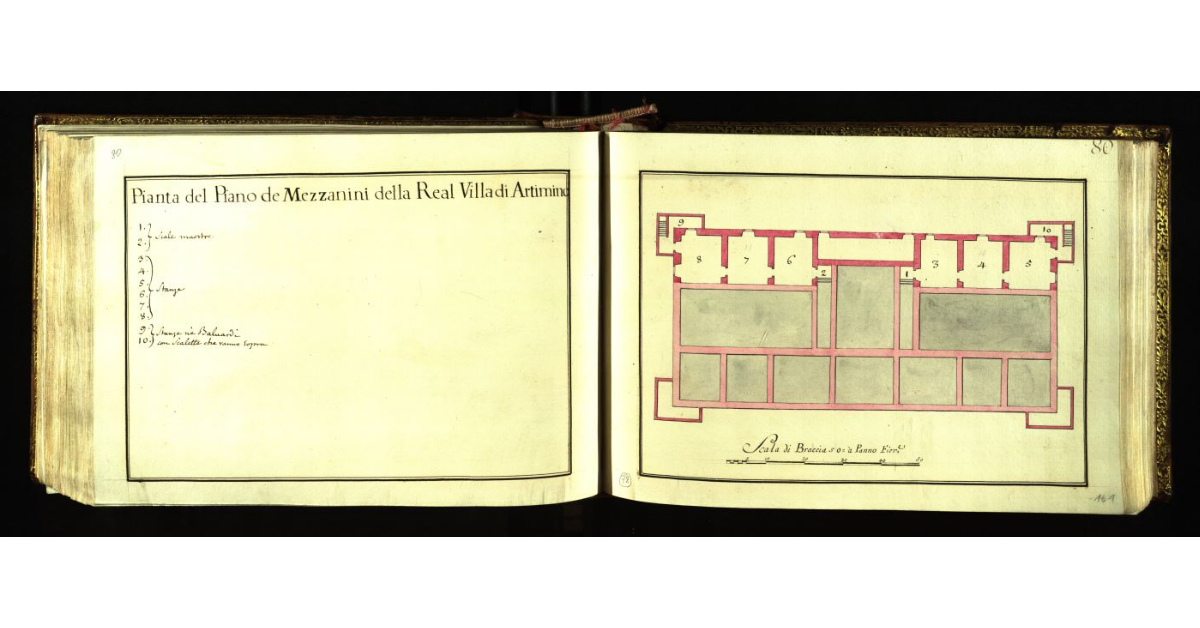 80
Pianta del Piano de Mezzanini della Real Villa di Artimino
1.
2. Scale maestre
3
4.
5.
6. Stanze
7.
8.
9. Stanze ne Baluardi
10. con Scalette che vanno sopra
80
9
10
8
7
6
2
1
3
4
5
Scala di Braccia 50 a Panno Fior.